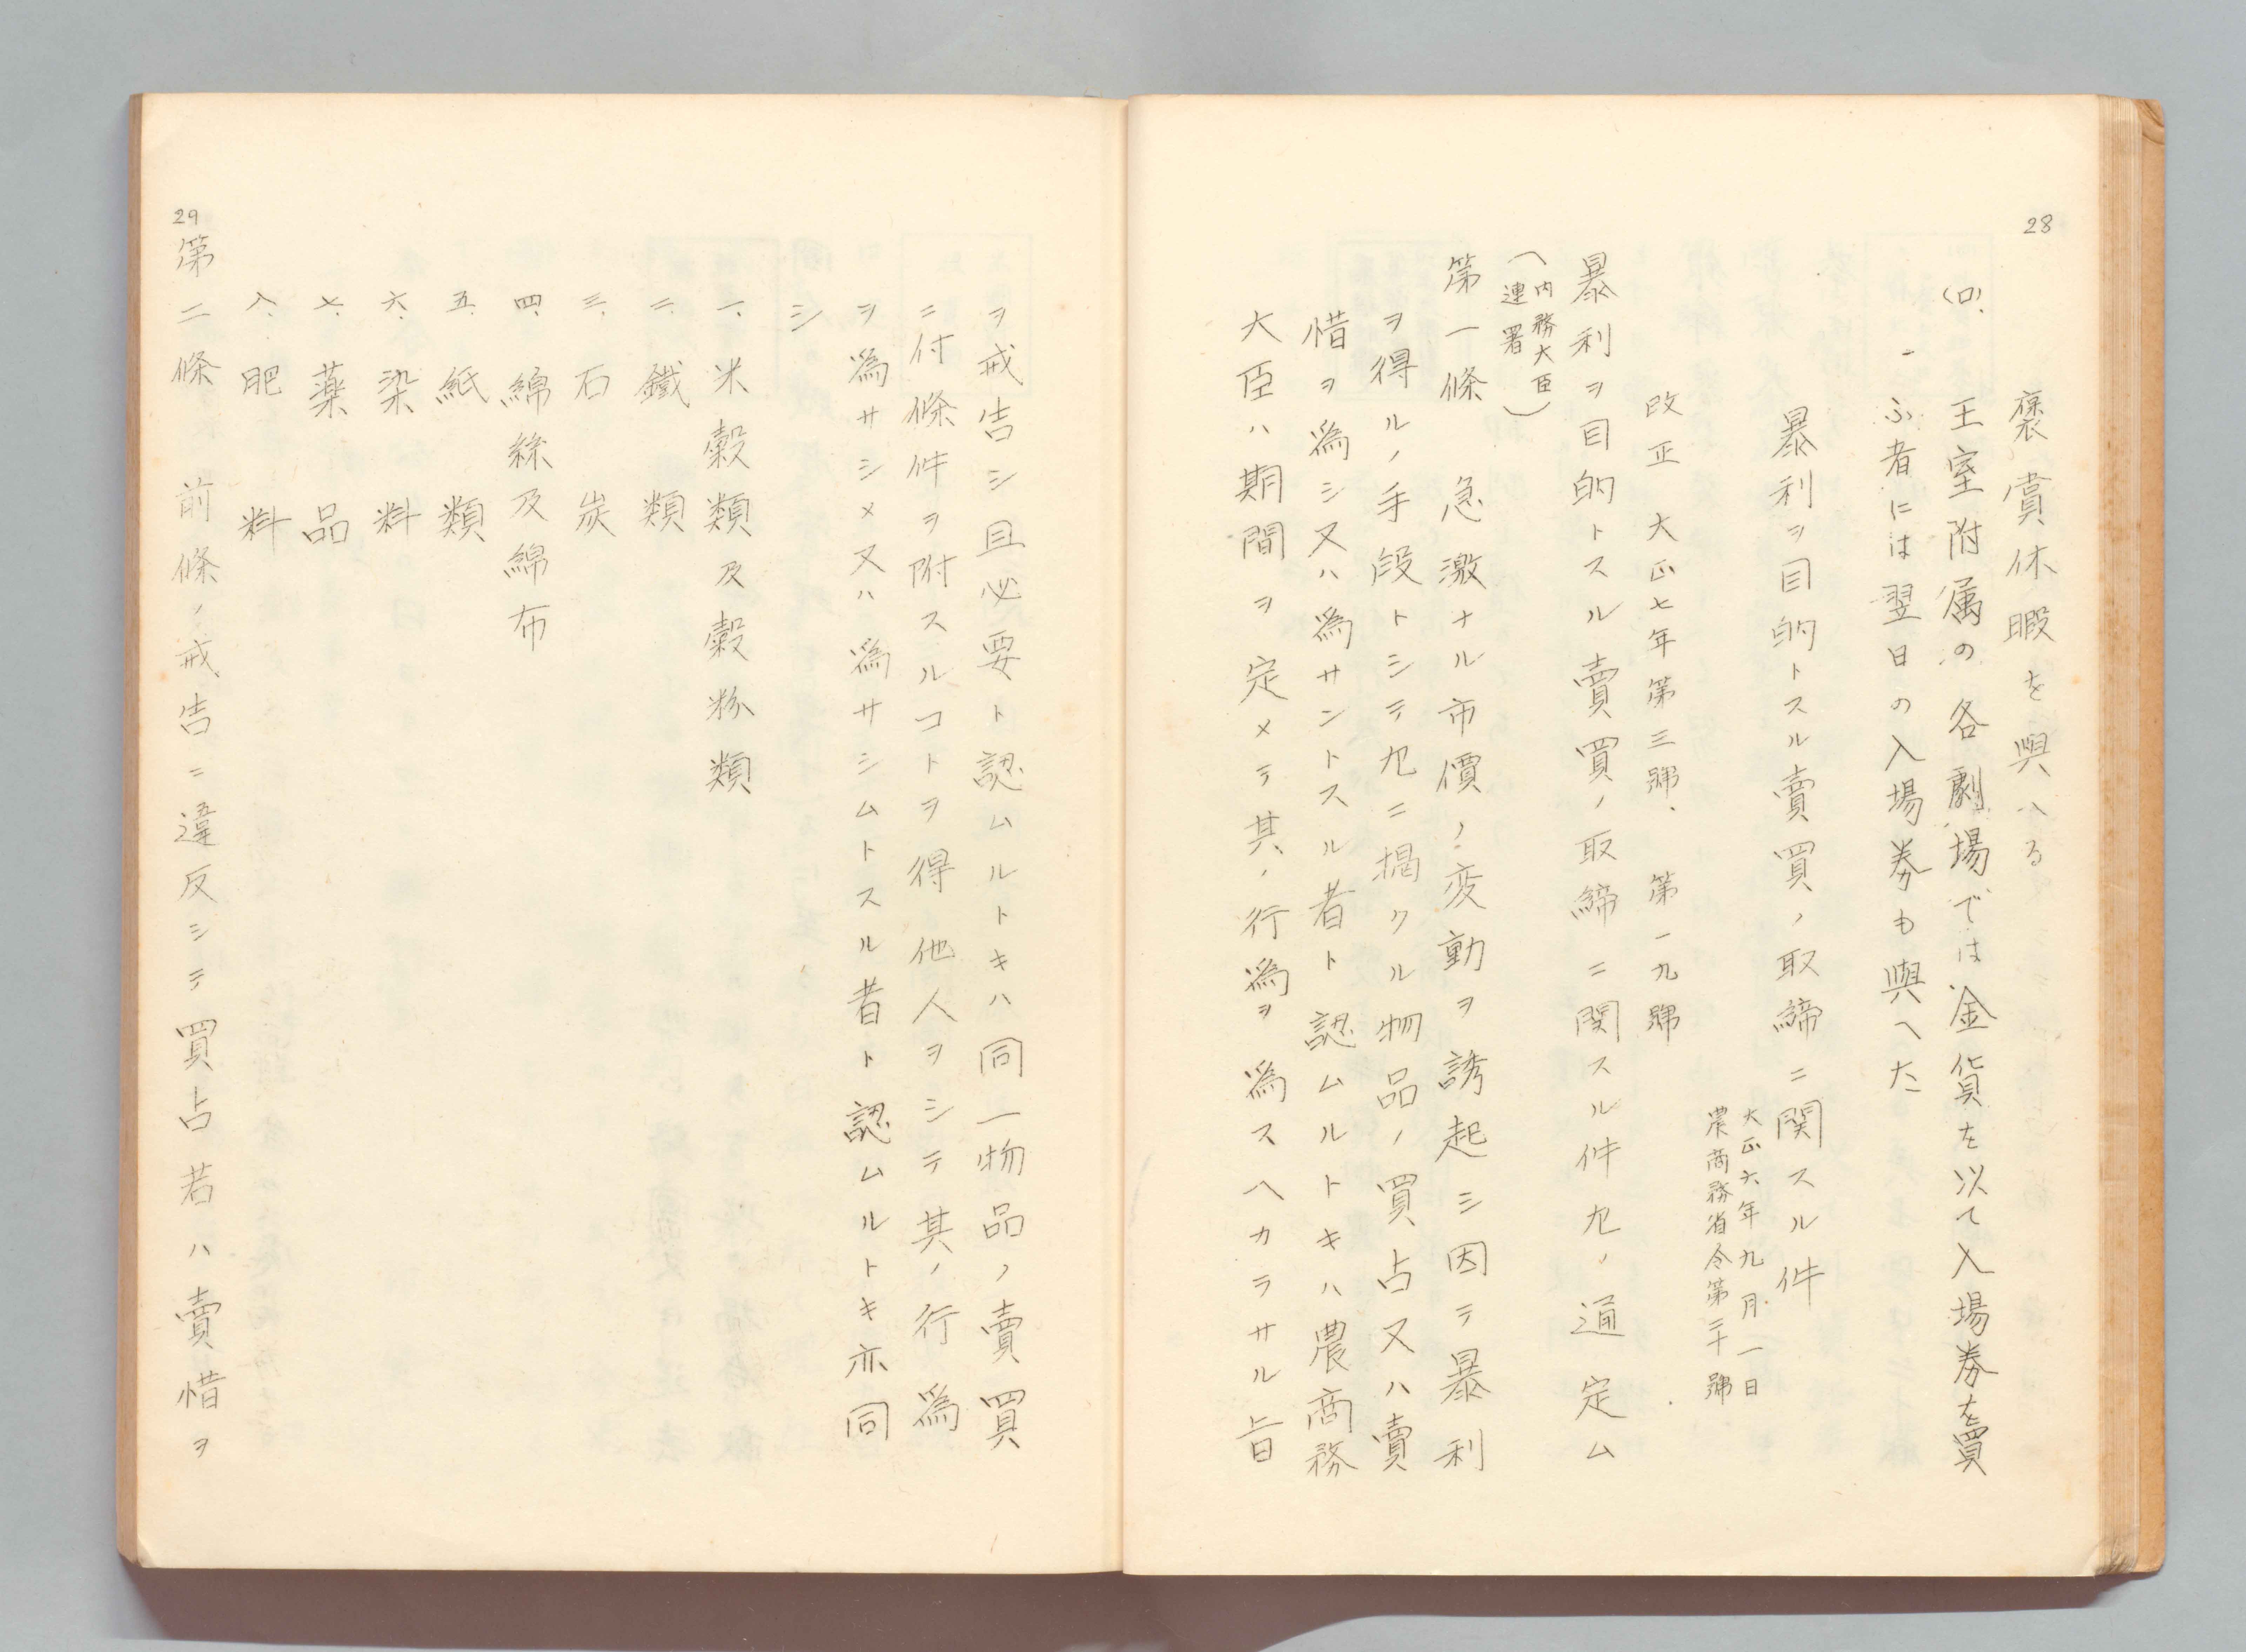 28
褒賞休暇を與へる
(ロ)、王室附属の各劇場では金貨を以て入場券を買
ふ者には翌日の入場券も與へた
暴利ヲ目的トスル賣買ノ取締ニ関スル件
大正六年九月一日
農商務省令第二十號
改正 大正七年第三號、第一九號
暴利ヲ目的トスル賣買ノ取締ニ関スル件左ノ通定ム
(内務大臣
連署)
第一條 急激ナル市價ノ変動ヲ誘起シ因テ暴利
ヲ得ルノ手段トシテ左ニ掲クル物品ノ買占又ハ賣
惜ヲ為シ又ハ為サントスル者ト認ムルトキハ農商務
大臣ハ期間ヲ定メテ其ノ行為ヲ為スヘカラサル旨
ヲ戒告シ且必要ト認ムルトキハ同一物品ノ賣買
ニ付條件ヲ附スルコトヲ得他人ヲシテ其ノ行為
ヲ為サシメ又ハ為サシムトスル者ト認ムルトキ亦同
シ
一、米穀類及穀粉類
二、鐵類
三、石炭
四、綿絲及綿布
五、紙類
六、染料
七、薬品
八、肥料
29
第二條 前條ノ戒告ニ違反シテ買占若ハ賣惜ヲ